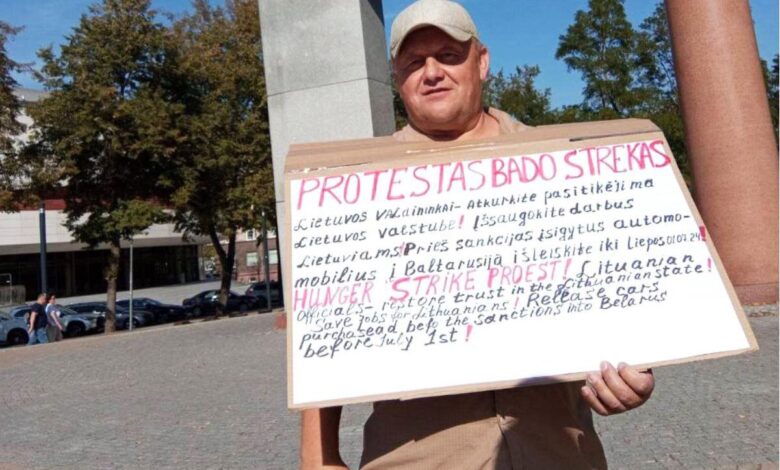 PROTESTAS BADO STREKAS
Lietuvos VALdininkai- Atkurkite pasitikėjima
Lietuvos valstube! Išsaugokite darbus
Lietuviams! Prieš sankcijas įsigytus automo-
mobilius į Baltarusiją išleiskite iki Liepos 01.07.24!
HUNGER STRIKE PROEST! Lithuanian
Officials - restore trust in the Lithuanian state!
Save jobs for Lithuanians! Release cars
purchasead befo the sanctions into Belarus
before July 1st!